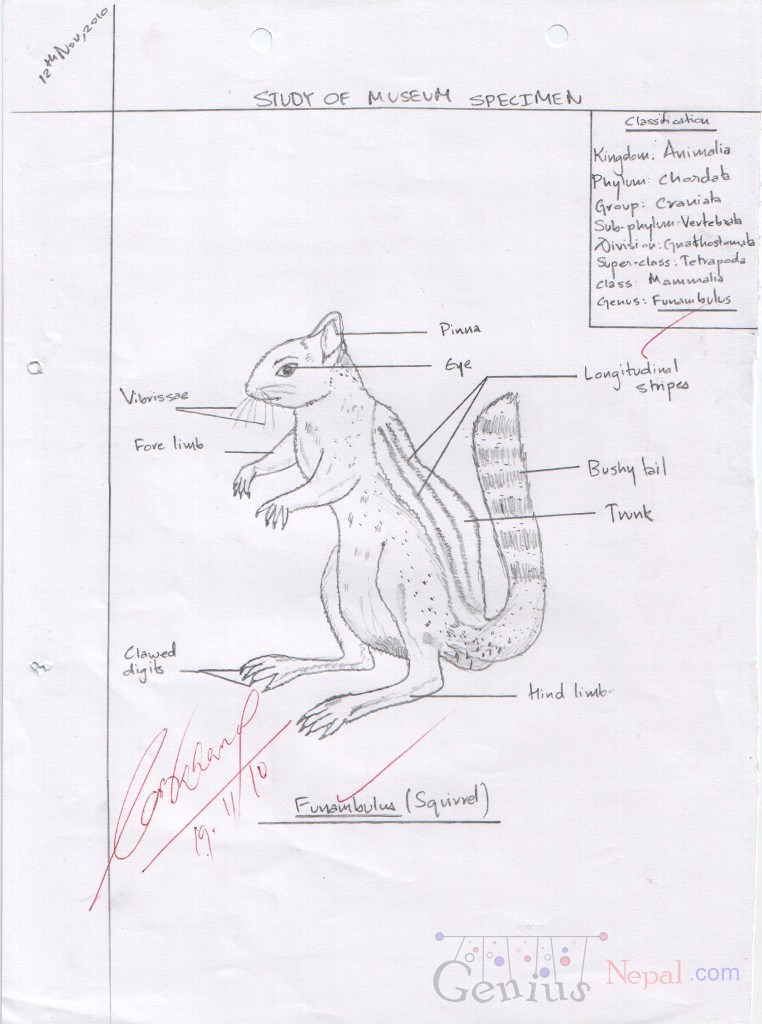 12th Nov, 2010
STUDY OF MUSEUM SPECIMEN
Classification
Kingdom: Animalia
Phylum: Chordata
Group: Craniata
Sub-phylum: Vertebrata
Division: Gnathostomata
Super-class: Tetrapoda
Class: Mammalia
Genus: Funambulus
Pinna
Eye
Longitudinal
stripes
Vibrissae
Fore limb
Bushy tail
Trunk
Clawed
digits
Hind limb
19.11.10
Funambulus (Squirrel)
Genius Nepal.com